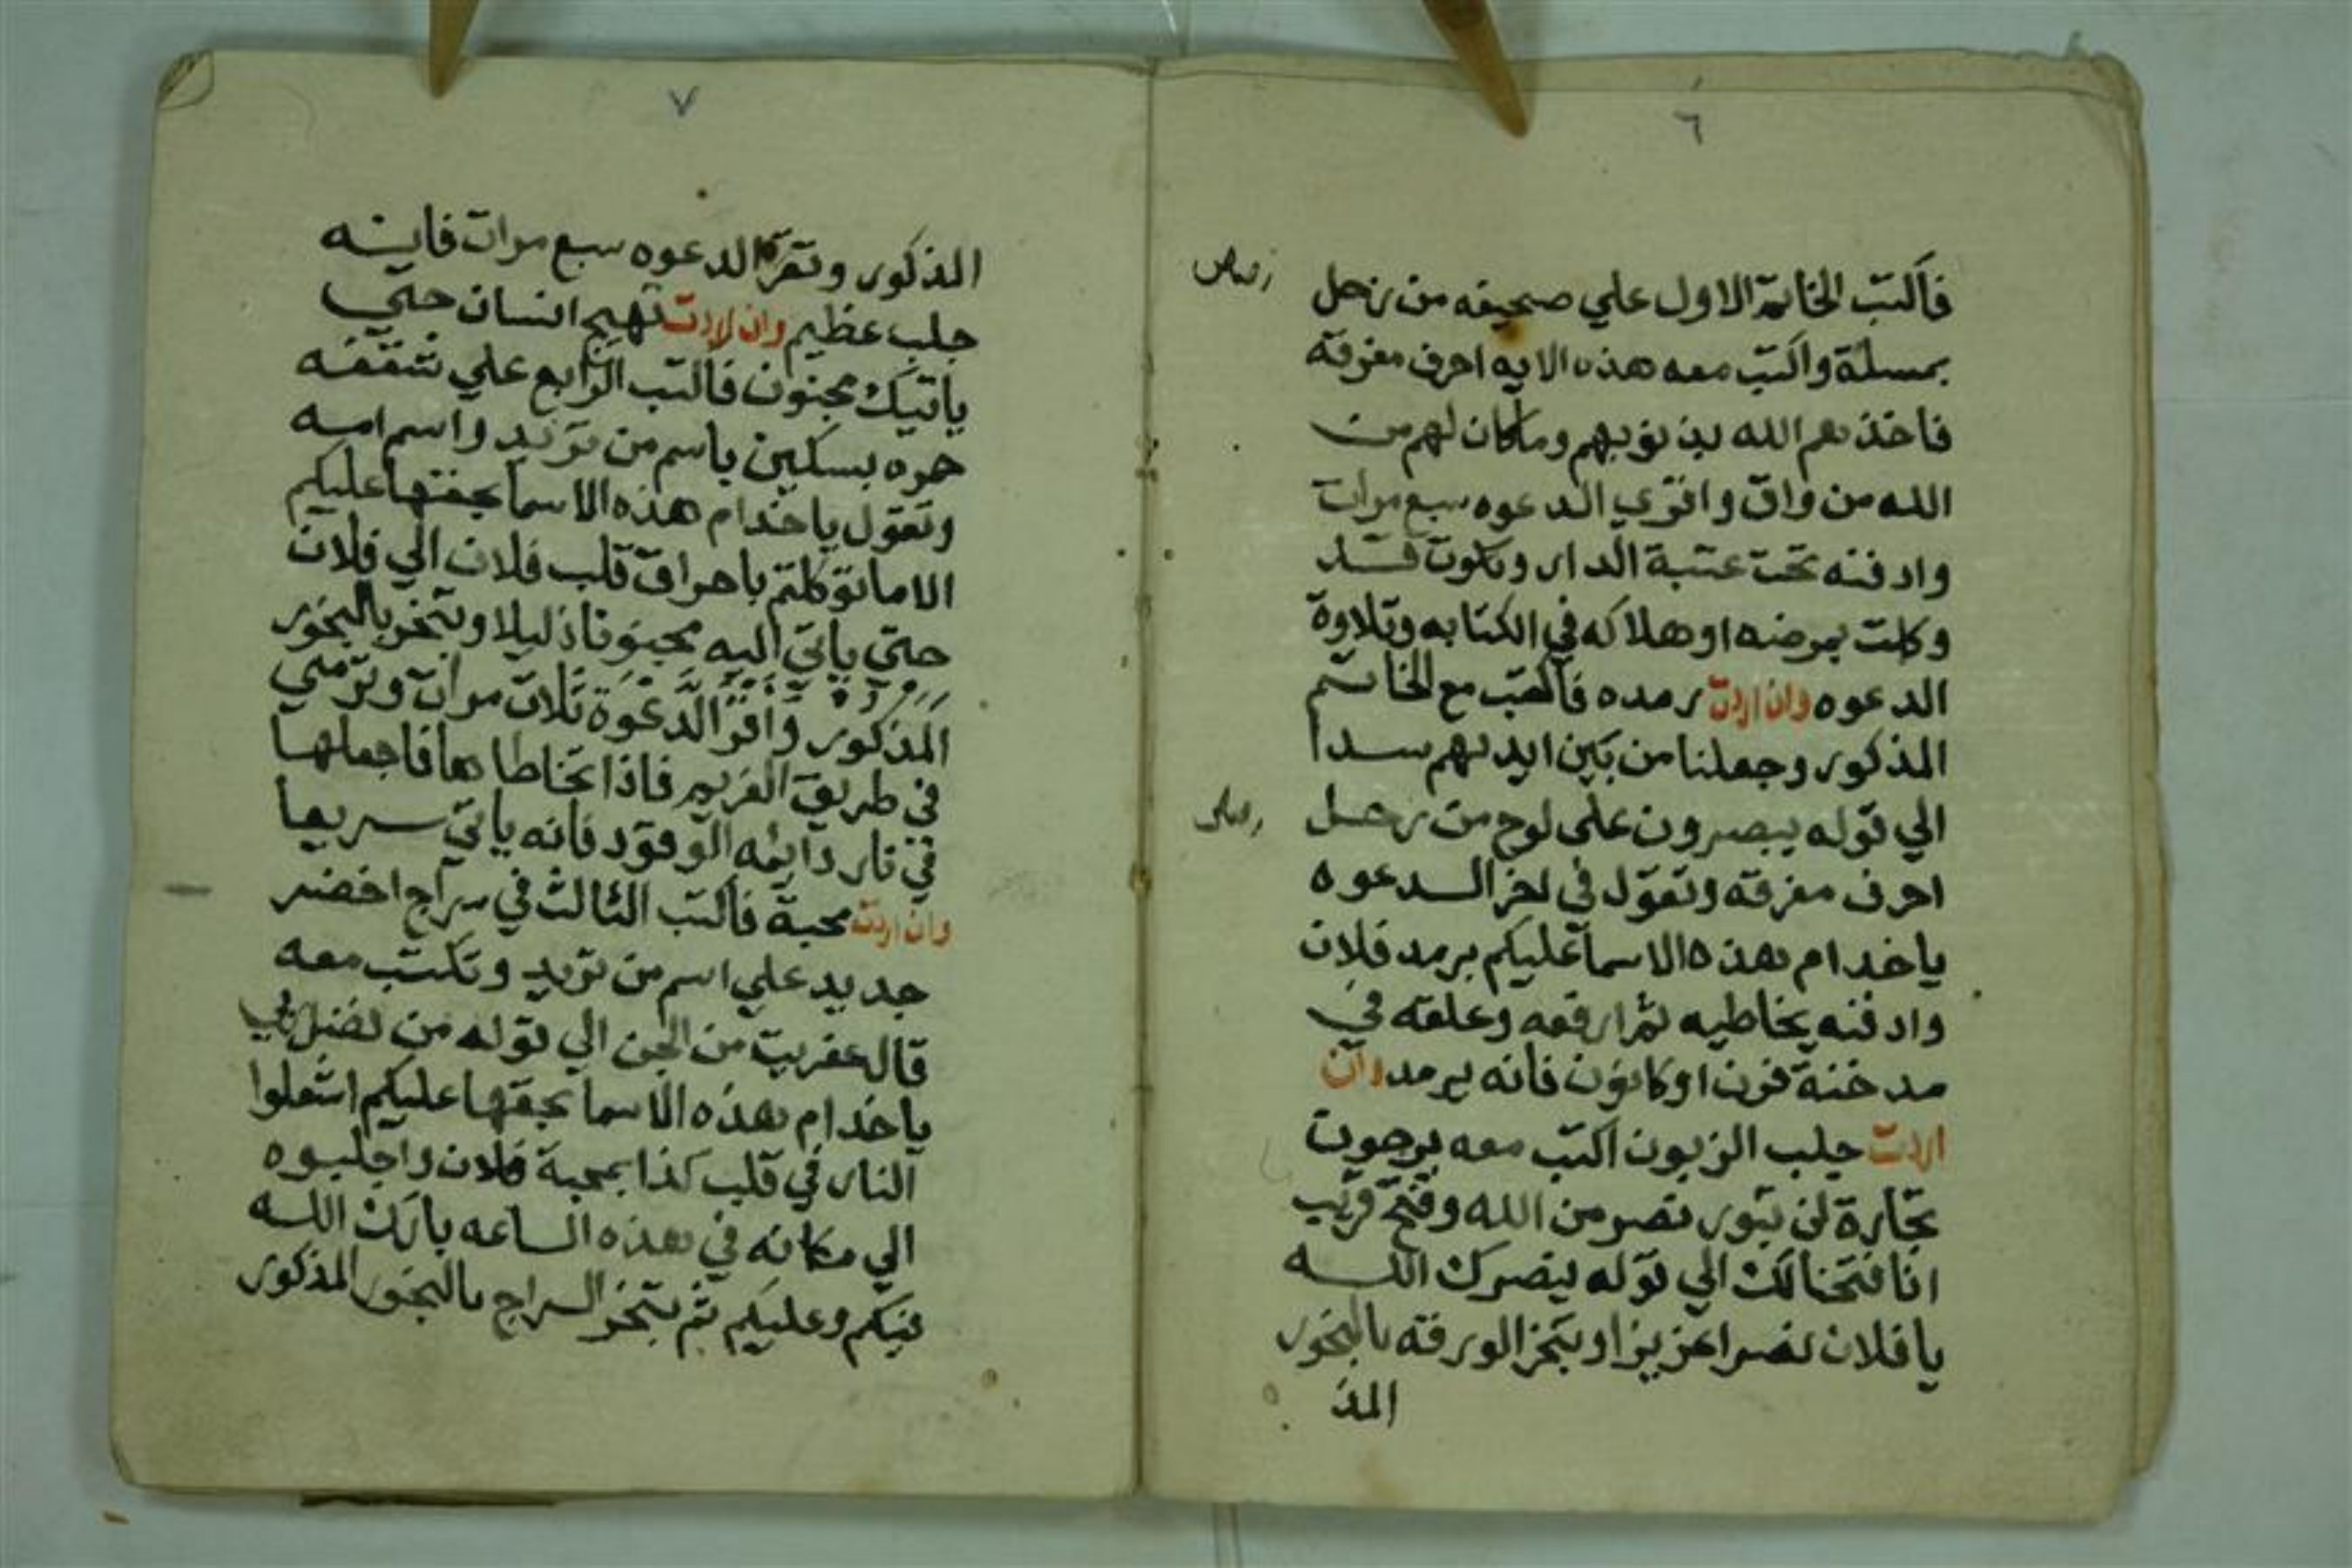 ٦
فاكتب الخاتم الاول علي صحيفه من زحل
رصاص
بمسلة واكتب معه هذه الايه احرف مفرقة
فاخذهم الله بذنوبهم وماكان لهم من
الله من واق واقري الدعوه سبع مرات
وادفنه تحت عتبة الدار وتكون قد
وكلت بمرضه او هلاكه في الكتابه وتلاوة
الدعوه وان اردت رمده فاكتب مع الخاتم
المذكور وجعلنا من بين ايديهم سدا
الي قوله يبصرون على لوح من زحل
رصاص
احرف مفرقه وتقول في اخر الدعوه
ياخدام هذه الاسما عليكم برمد فلان
وادفنه بخاطيه ثم ارفعه وعلقه في
مدخنة فرن او كانون فانه يرمد وان
اردت جلب الزبون اكتب معه يرجون
تجارة لن تبور نصر من الله وفتح قريب
انا فتحنا لك الي قوله ينصرك الله
يافلان نصرا عزيزا وبتخر الورقه بالبخور
المذ
٧
المذكور وتقرة الدعوه سبع مرات فاينه
جلب عظيم وان اردت تهيج انسان حتي
ياتيك مجنون فاكتب الرابع علي شقفه
حره بسكين باسم من تريد واسم امه
وتقول ياخدام هذه الاسما بحقها عليكم
الاماتوكلتم باحراق قلب فلان الي فلان
حتي ياتي اليه ذليلا وبتخر بالبخور
المذكور واقرا الدعوة ثلاث مرات وترمي
في طريق الغريم فاذا تخاطاها فاجعلها
في نار دايمه الوقود فانه ياتي سريعا
وان اردت محبة فاكتب الثالث في سراج اخضر
جديد علي اسم من تريد وتكتب معه
قال عفريت من الجن الي قوله من فضل ربي
ياخدام هذه الاسما بحقها عليكم اشعلوا
النار في قلب كذا بمحبة فلان واجلبوه
الي مكانه في هذه الساعه بارك الله
فيكم وعليكم ثم بتخر السراج بالبخور المذكور